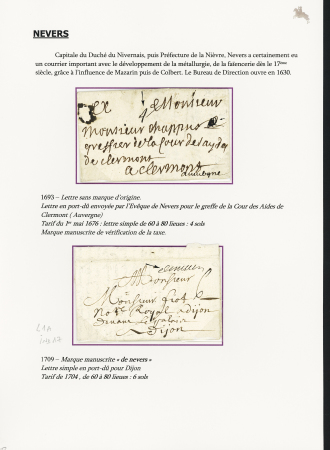 NEVERS
Capitale du Duché du Nivernais, puis Préfecture de la Nièvre, Nevers a certainement eu
un courrier important avec le développement de la métallurgie, de la faïencerie dès le 17ème
siècle, grâce à l'influence de Mazarin puis de Colbert. Le Bureau de Direction ouvre en 1630.
Monsieur
monsieur chappus
greffier de la Cour de saydes
de clermont
a clermont
auvergne
1693 – Lettre sans marque d'origine.
Lettre en port-dû envoyée par l'Evêque de Nevers pour le greffe de la Cour des Aides de
Clermont ( Auvergne)
Tarif du 1er mai 1676 : lettre simple de 60 à 80 lieues : 4 sols
Marque manuscrite de vérification de la taxe.
Monsieur
Monsieur
Royal a dijon
Dijon
1709 – Marque manuscrite « de nevers »
Lettre simple en port-dû pour Dijon
Tarif de 1704 , de 60 à 80 lieues : 6 sols